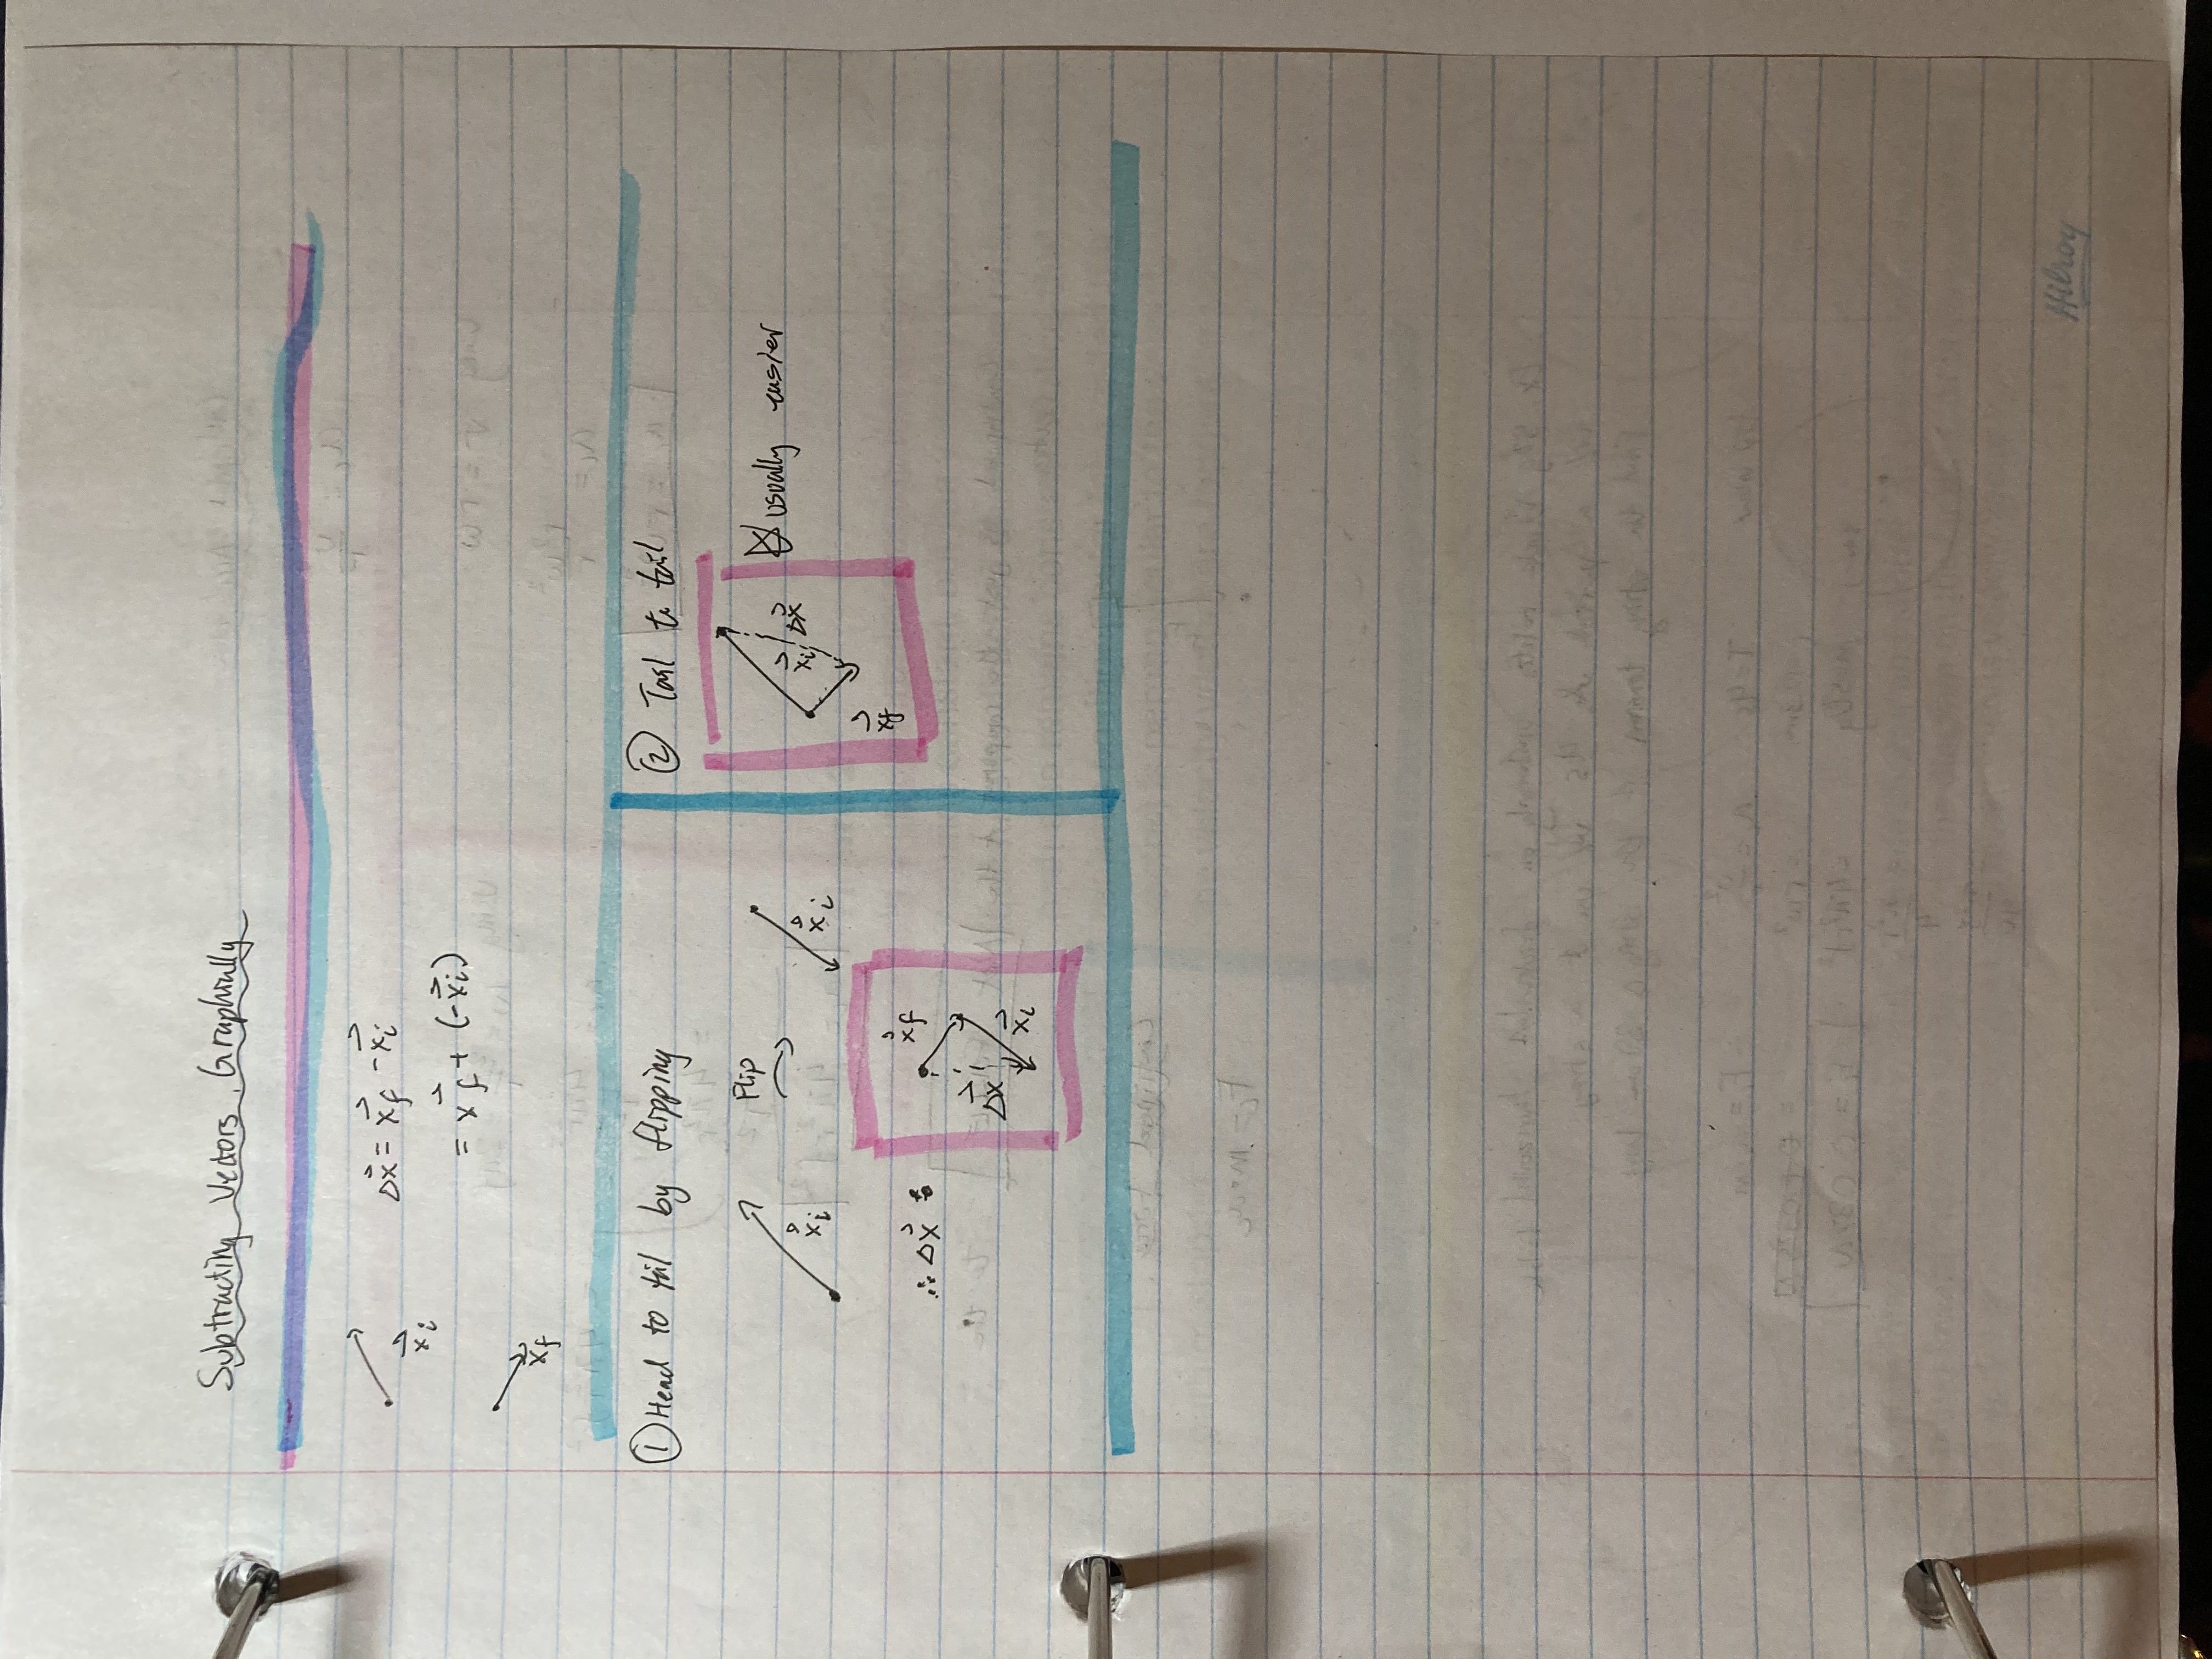 Subtracting Vectors Graphially
x⃗i
Δx⃗ = x⃗f - x⃗i
= x⃗f + (-x⃗i)
x⃗f
① Head to tail by flipping
x⃗i
Flip
x⃗i
∴ Δx⃗
x⃗f
Δx⃗
x⃗i
② Tail to tail
x⃗i
Δx⃗
x⃗f
usually easier
Hilroy